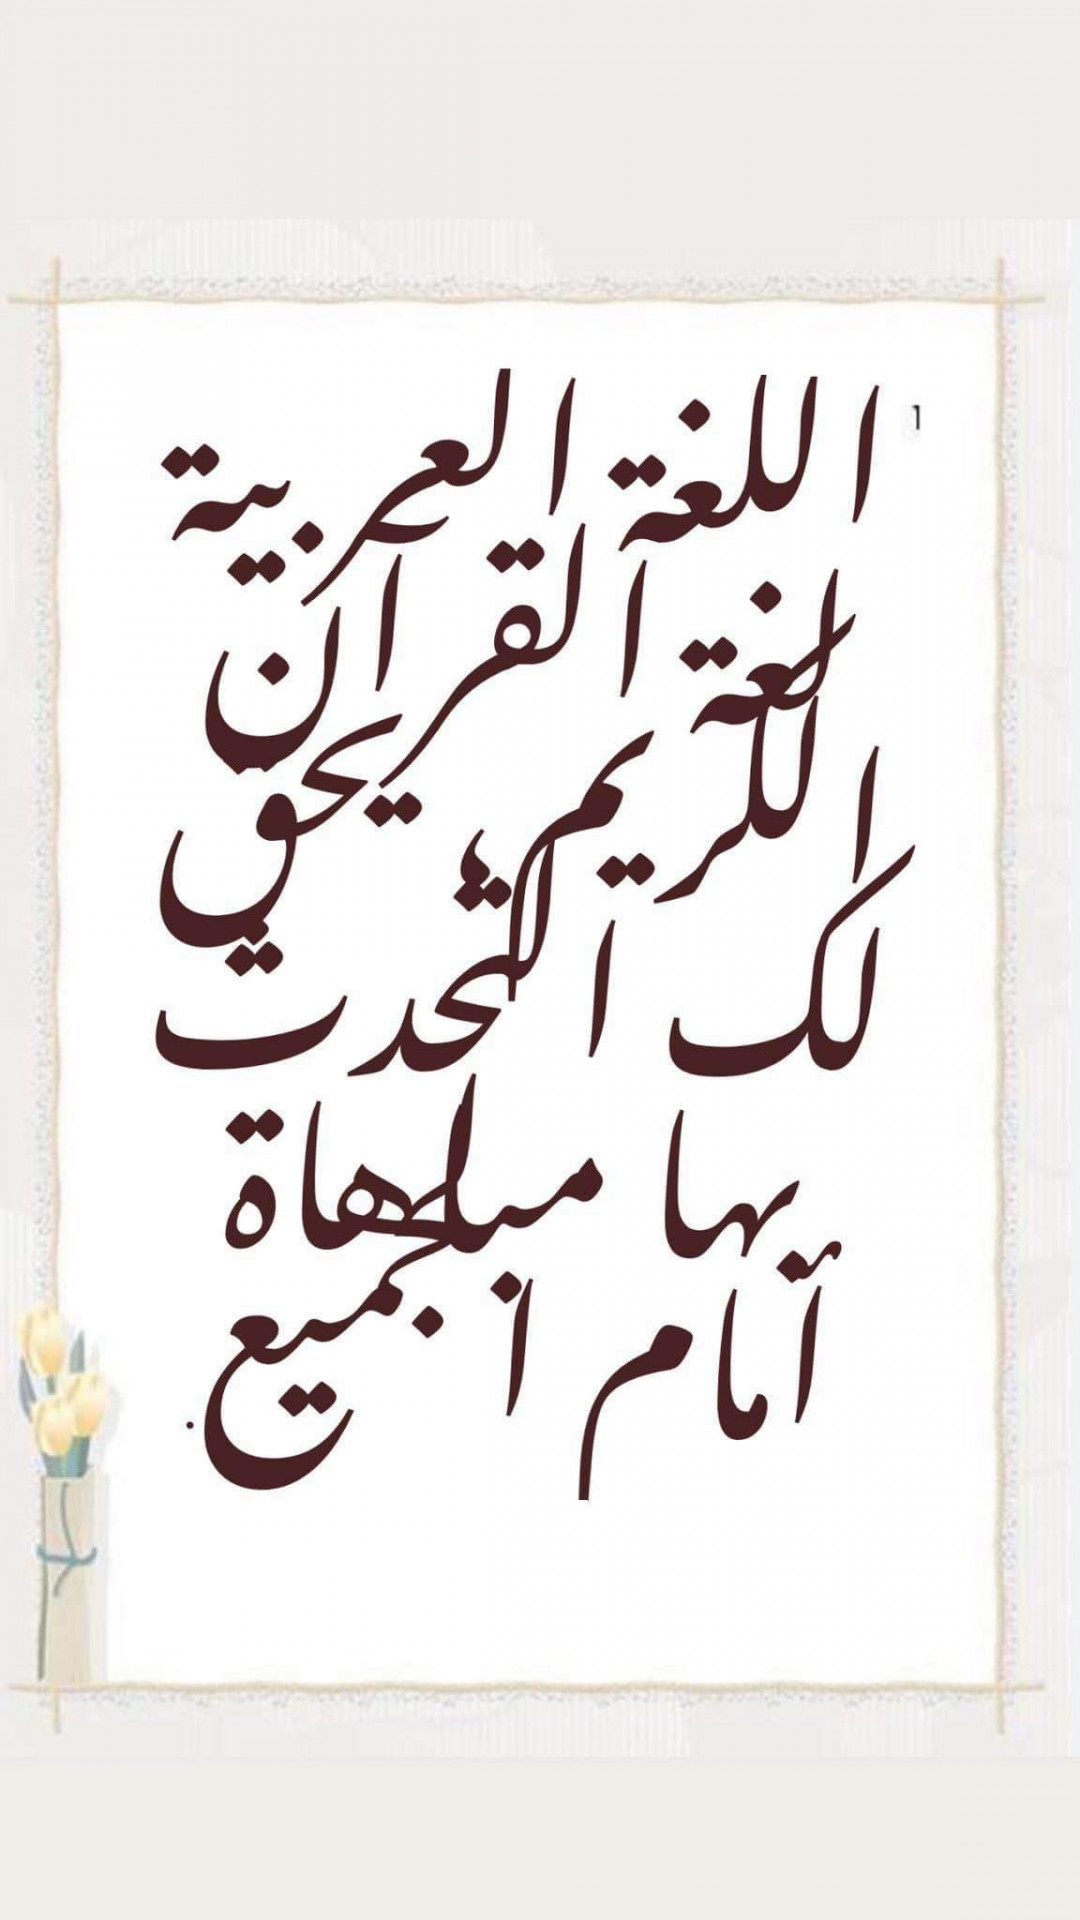 اللغة العربية
لغة القرآن
الكريم، يحق
لك التحدث
بها مباهاة
أمام الجميع.